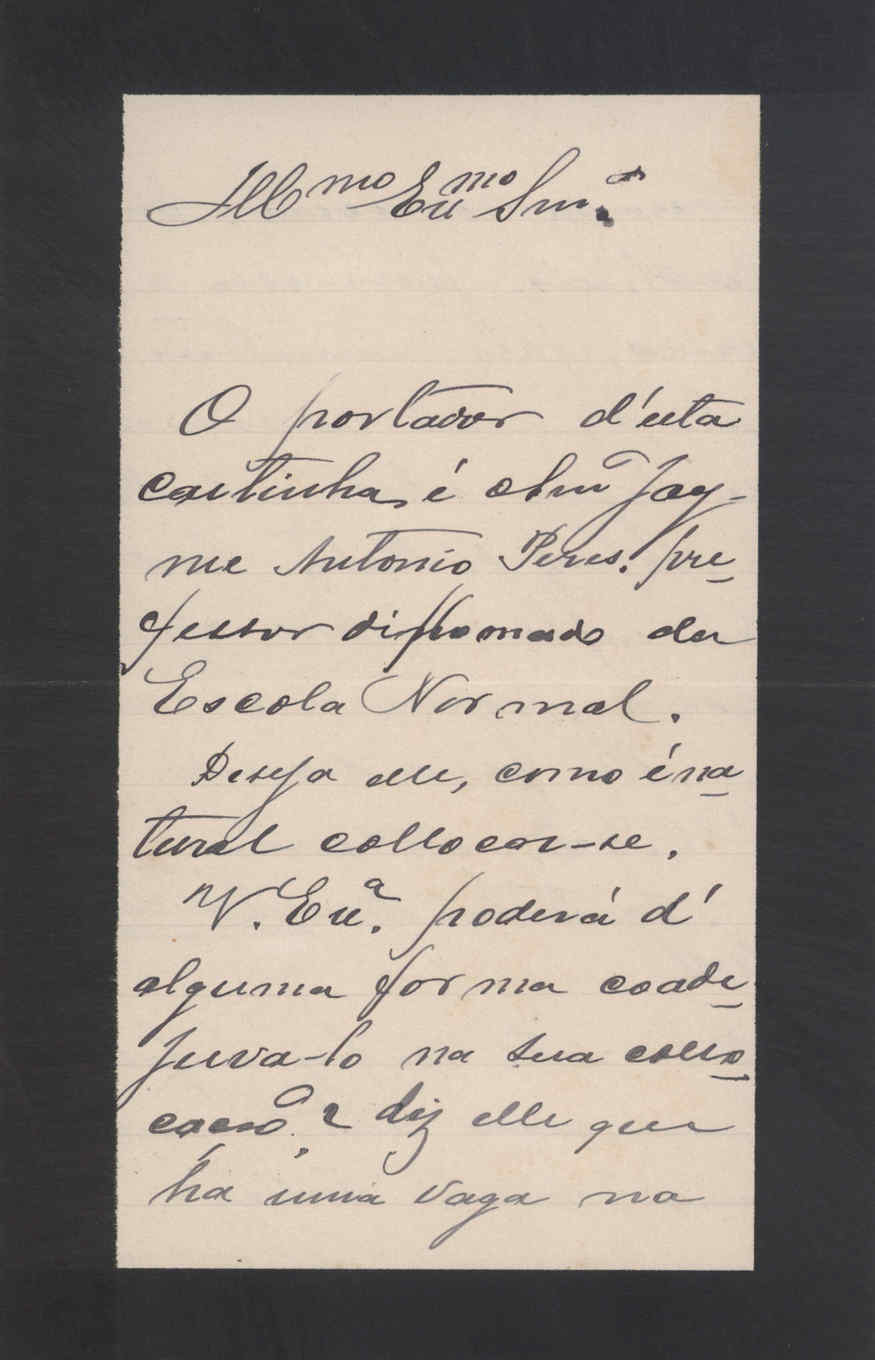 Illmo Exmo Snr.
O portador d'esta
cartinha, é o Snr Jay-
me Antonio Peres. pro-
fessor diplomado da
Escola Normal.
Deseja elle, como é na-
tural collocar-se.
V. Exa. poderá d'
alguma forma coad-
juva-lo na sua collo-
cação? diz elle que
ha uma vaga na